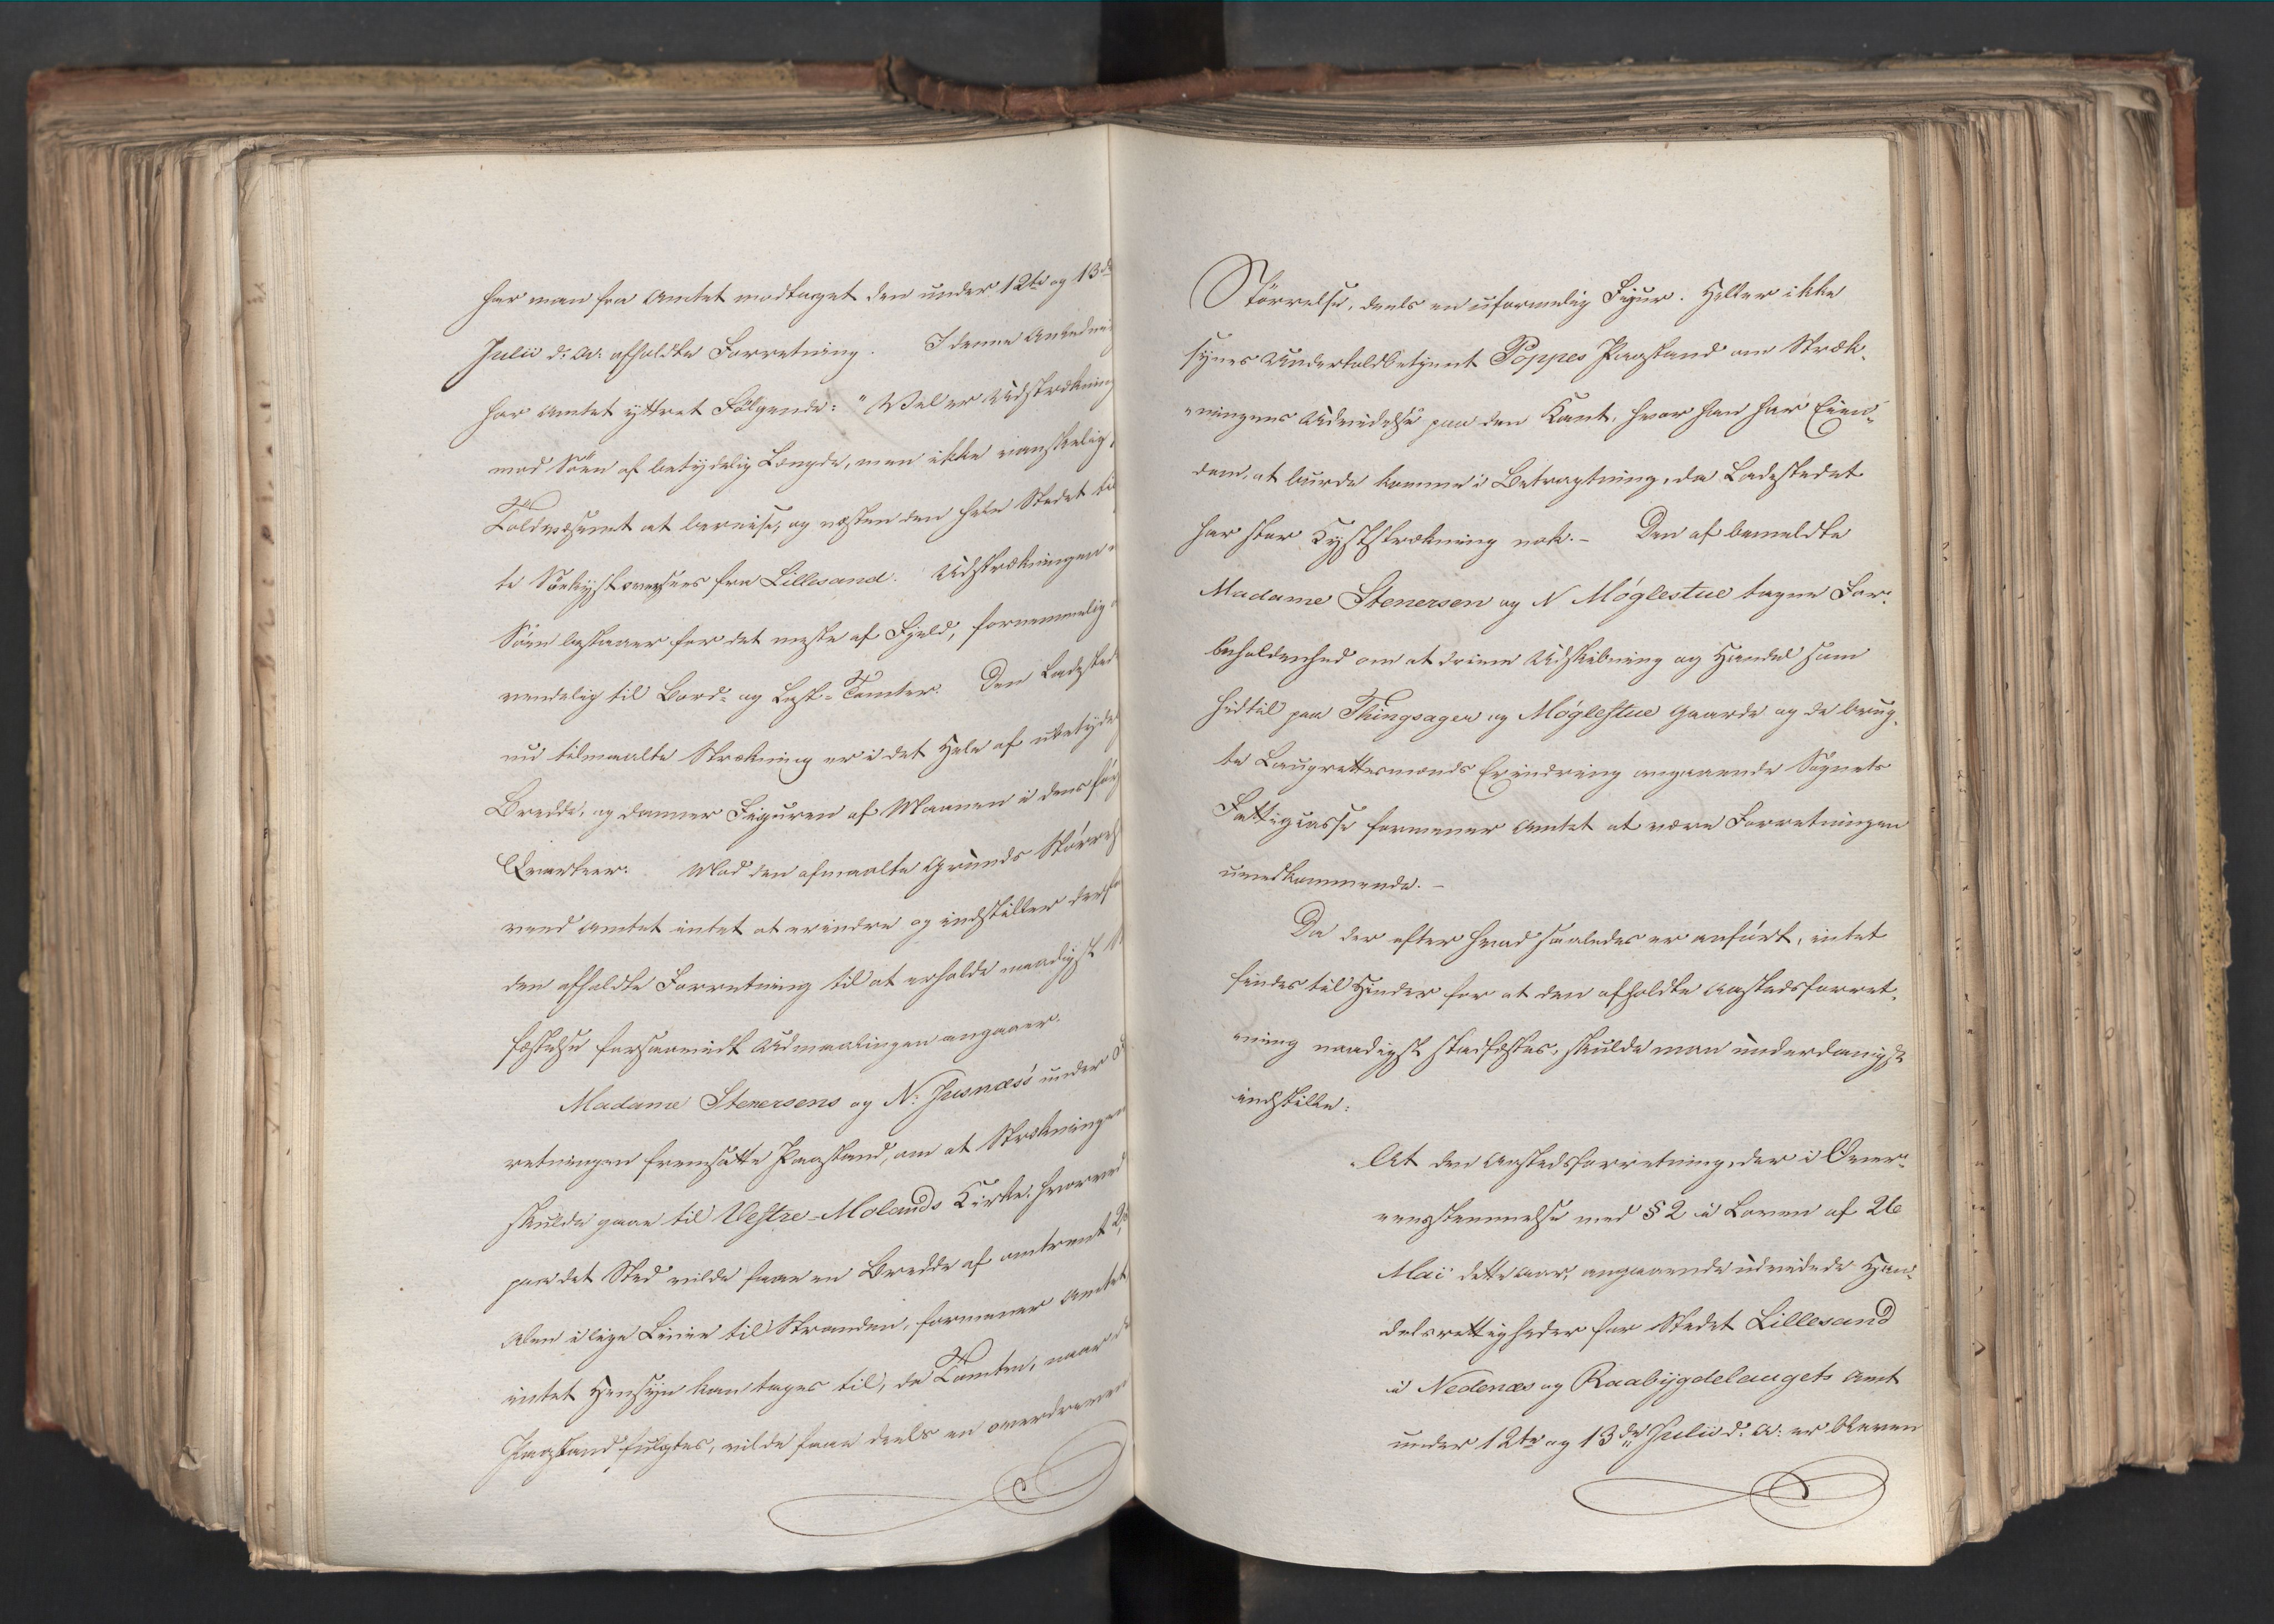 har man fra Amtet modtaget den under 12te og 13de
Julii d: A: afholdte Forretning. I denne Anledni
har Amtet yttret Følgende: "Vel er Udstrækning
mod Søen af betydelig Længde, men ikke vanskelig,
Toldvæsenet at bevise, og næsten den hele Stedet til
te Søekyst oversees fra Lillesand. Udstrækningen
Søen bestaaer for det meste af Fjeld, fornemmelig
vendelig til Bord- og Last-Tomter. Den Ladested
nu tilmaalte Strækning er i det Hele af ubetyde
Bredde, og danner Figuren af Maanen i dens før
Qvarteer. Mod den afmaalte Grunds Størrel
veed Amtet intet at erindre og indstiller derfo
den afholdte Forretning til at erholde naadigst
fæstelse forsaavidt Udmaalingen angaaer.
Madame Stenersens og N: Jusnæs's under
retningen fremsatte Paastand, om at Strækningen
skulde gaae til Vestre-Molands Kirke, hvorved
paa det Sted vilde faae en Bredde af omtrent
Alen i lige Linie til Stranden, formener Amtet
intet Hensyn kan tages til, da Tomten, naar
Paastand fulgtes, vilde faae deels en overdreven
Størrelse, deels en uformelig Figur. Heller ikke
synes Undertoldbetjent Poppes Paastand om Stræk-
ningens Udvidelse paa den Kant, hvor han har Eien-
dom, at burde komme i Betragtning, da Ladestedet
har stor Kyststrækning nok. – Den af bemeldte
Madame Stenersen og N Møglestue tagne For-
beholdenhed om at drive Udskibning og Handel som
hidtil paa Thingsager og Møglestue Gaarde og de brug-
te Laugrettesmænds Erindring angaaende Sognets
Fattigcasse formener Amtet at være Forretningen
uvedkommende. –
Da der efter hvad saaledes er anført, intet
findes til Hinder for at den afholdte Aastedsforret-
ning naadigst stadfæstes, skulde man underdanigst
indstille:
At den Aastedsforretning, der i Over-
eensstemmelse med § 2 i Loven af 26
Mai dette Aar, angaaende udvidede Han-
delsrettigheder for Stedet Lillesand
i Nedenæs og Raabygdelaugets Amt
under 12te og 13de Julii d: A: er bleven